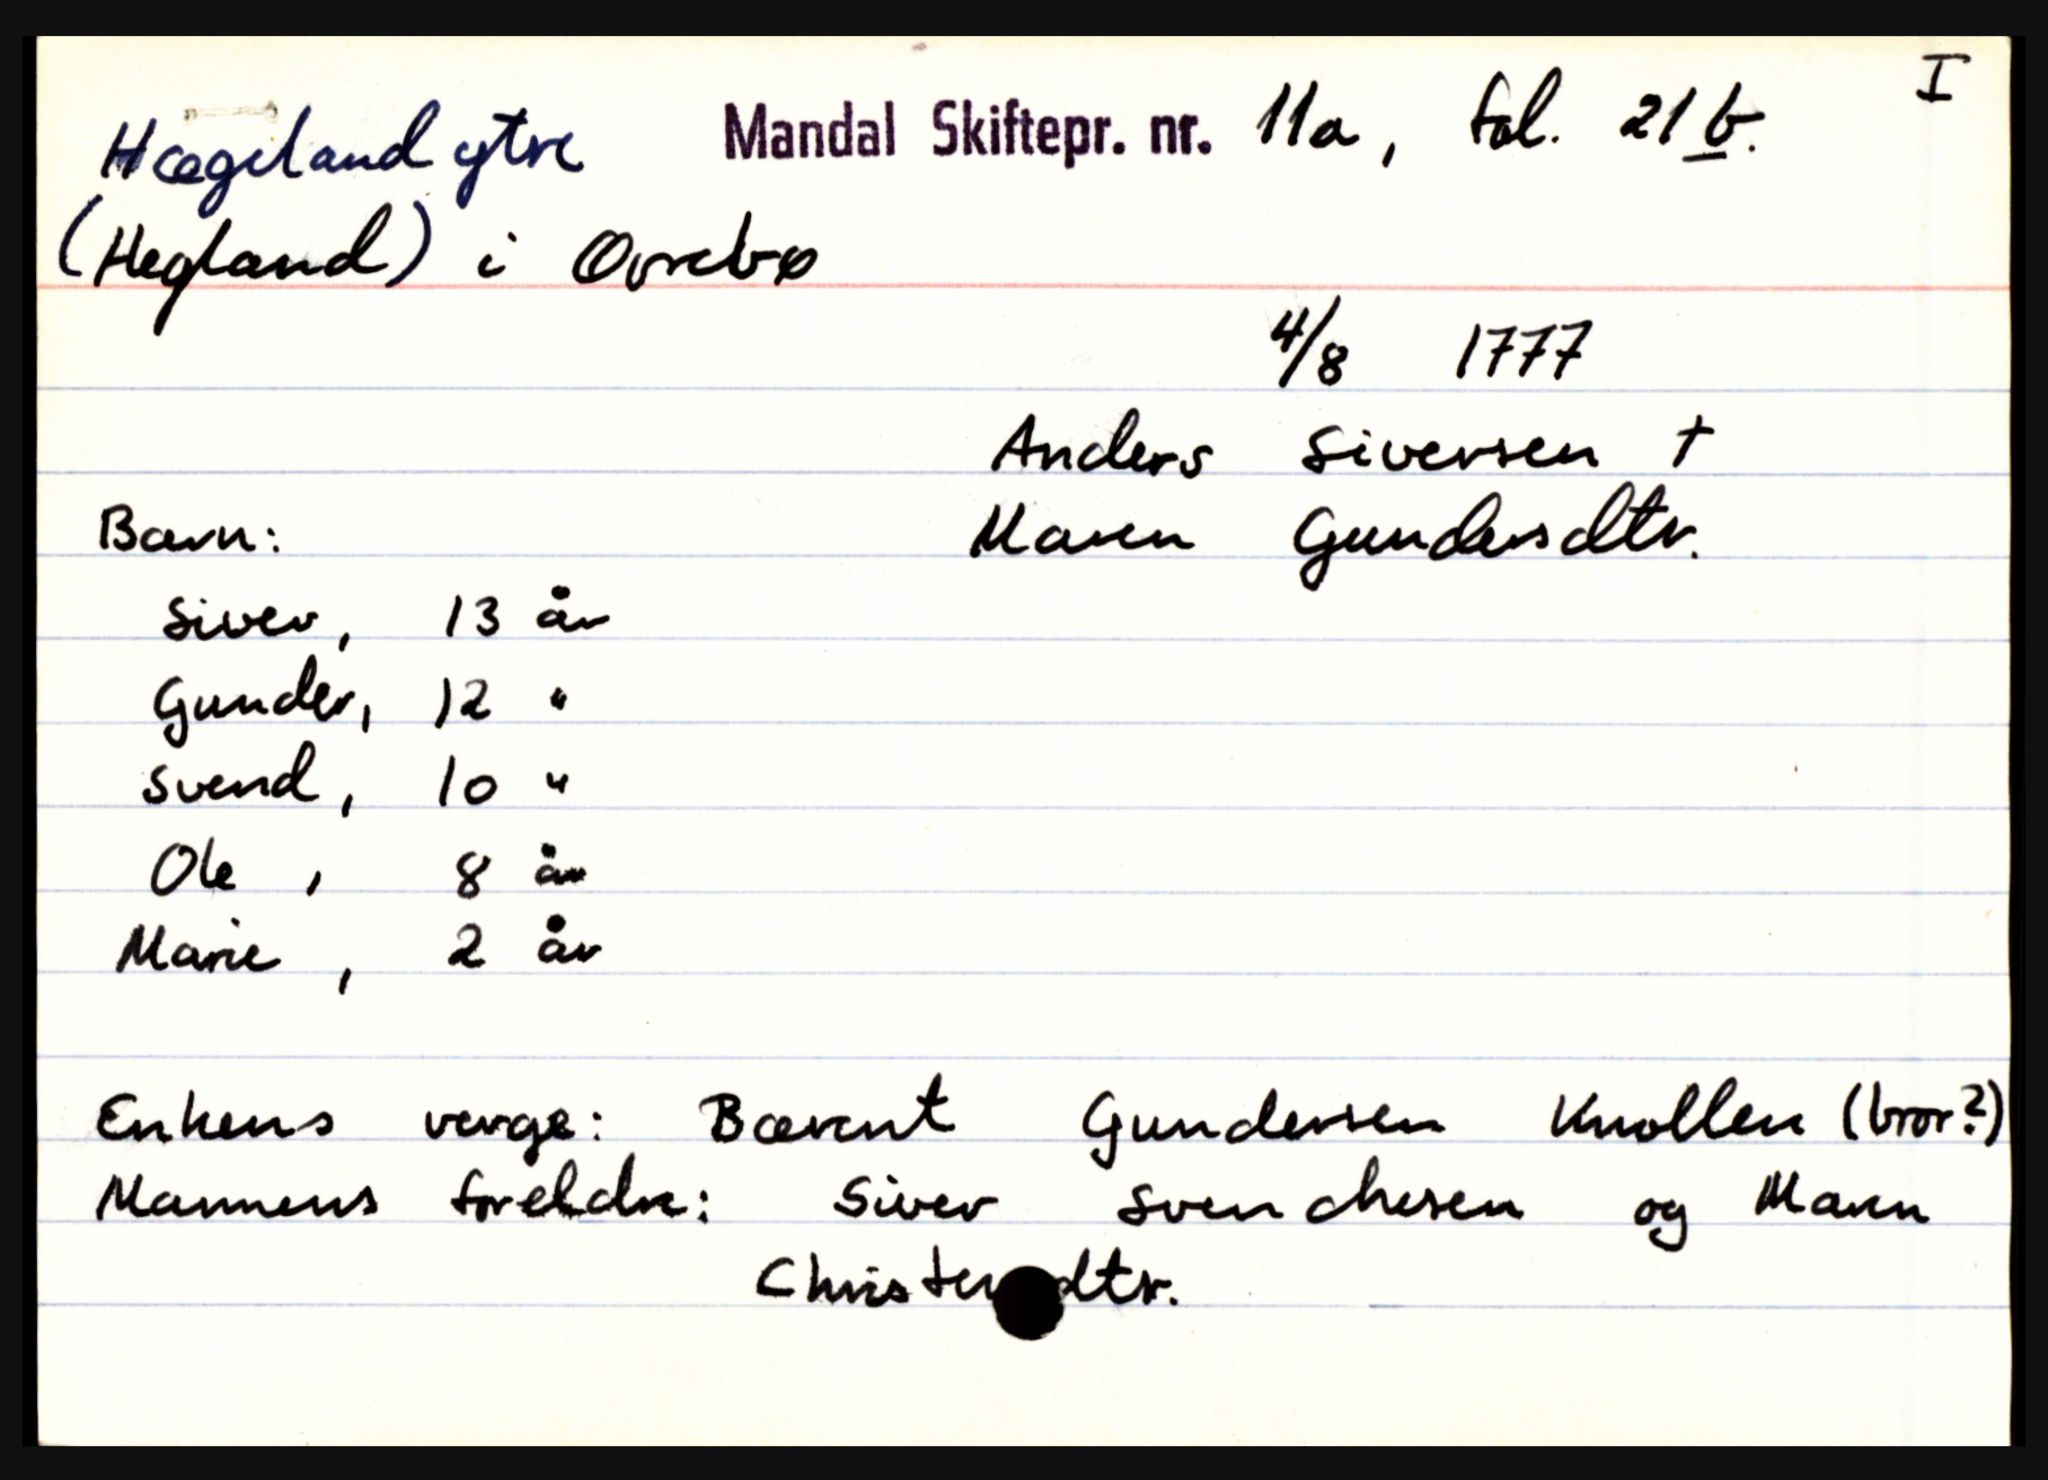 I
Hægeland ytre Mandal Skiftepr. nr. 11a, fol. 21 b.
(Hegland) i Øvrebø
4/8 1777
Anders Siversen †
Maren Gundersdtr.
Barn:
Siver, 13 år
Gunder, 12 "
Svend, 10 "
Ole, 8 år
Marie, 2 år
Enkens verge: Bærent Gundersen Knollen (bror?)
Mannens foreldre: Siver Svendsen og Maren
Christensdtr.